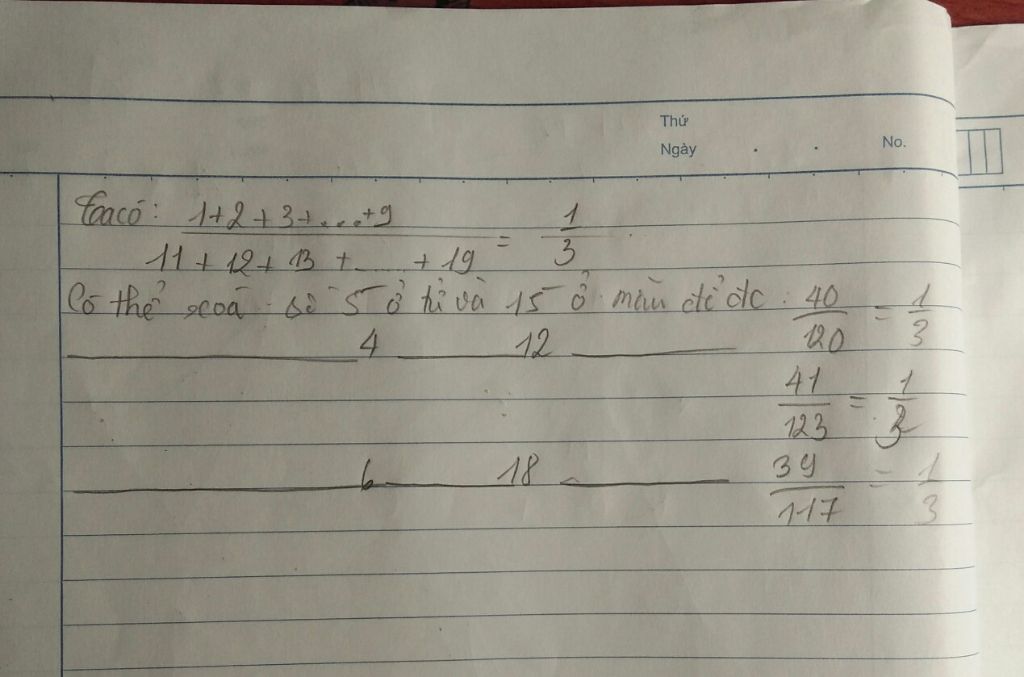 Thứ
Ngày . . No.
Ta có: 1+2+3+...+9 / 11+12+13+...+19 = 1/3
Có thể xoá số 5 ở tử và 15 ở mẫu để đc: 40/120 = 1/3
4 12
41/123 = 1/3
6 18 39/117 = 1/3